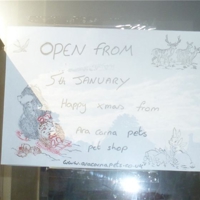 OPEN FROM
5th JANUARY
Happy xmas from
pets
pet shop